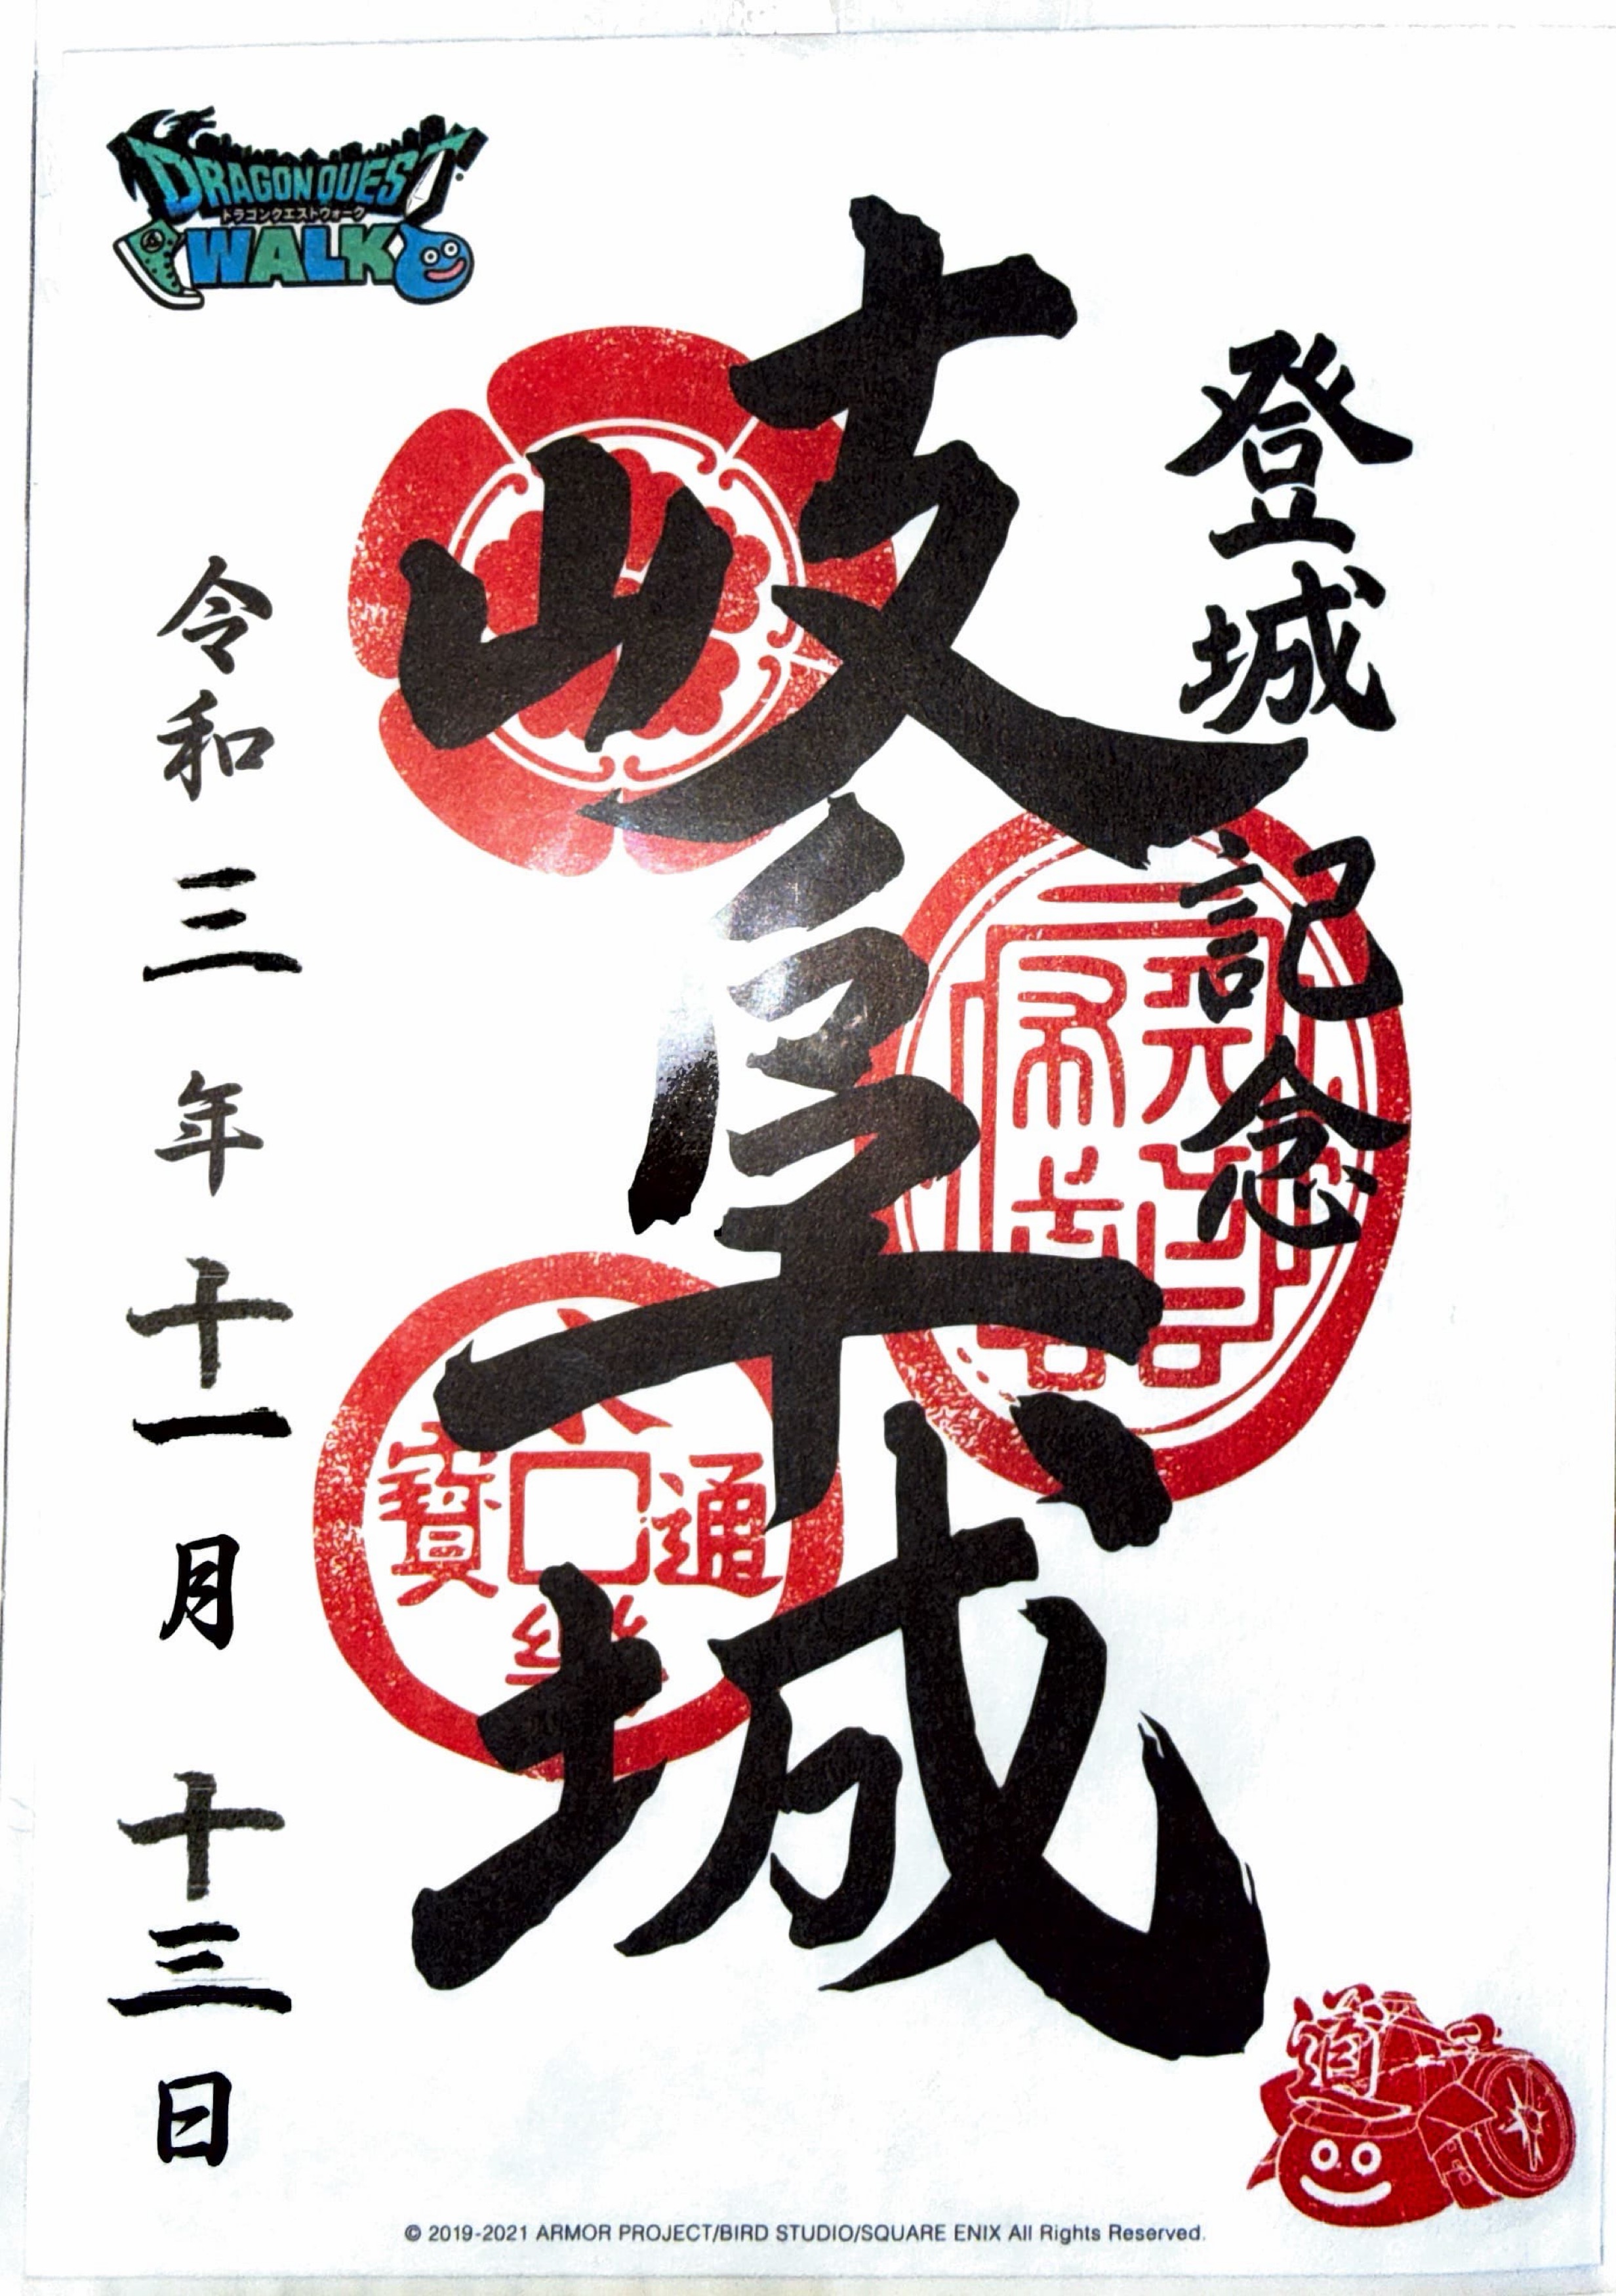 DRAGON QUEST
ドラゴンクエストウォーク
WALK
登城記念
岐阜城
永樂通寶
令和三年十一月十三日
道
© 2019-2021 ARMOR PROJECT/BIRD STUDIO/SQUARE ENIX All Rights Reserved.